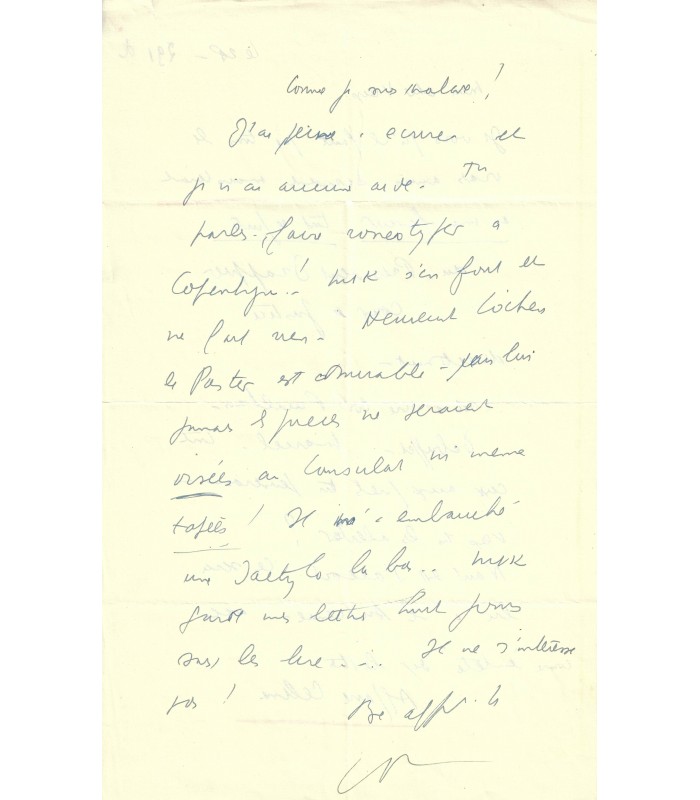 Comme je suis malade !
J'ai peine à écrire et
je n'ai aucune aide - Tu
parles - faire ronéotyper à
Copenhague ! Mik s'en fout et
ne fait rien - Heureusement
le Pastor est admirable - sans lui
jamais les pièces ne seraient
visées au Consulat ni même
tapées ! Il m'a embauché
une dactylo là bas .. Mik
garde mes lettres huit jours
sans les lire - .. Il ne s'intéresse
pas !